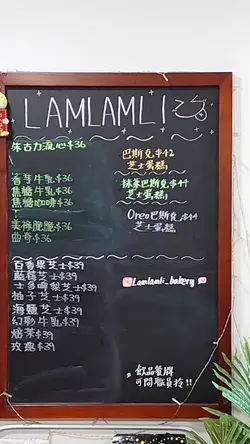 LAMLAMLI
朱古力流心$36
香芋牛乳$36
焦糖牛乳$36
焦糖咖啡$36
美祿脆脆$36
曲奇$36
百香果芝士$39
藍莓芝士$39
士多啤梨芝士$39
柚子芝士$39
海鹽芝士$39
幻彩牛乳$39
焙茶$39
玫瑰$39
巴斯克$42
芝士蛋糕
抹茶巴斯克$44
芝士蛋糕
Oreo巴斯克$44
芝士蛋糕
Lamlamli_bakery
飲品餐牌
可問職員拎!!